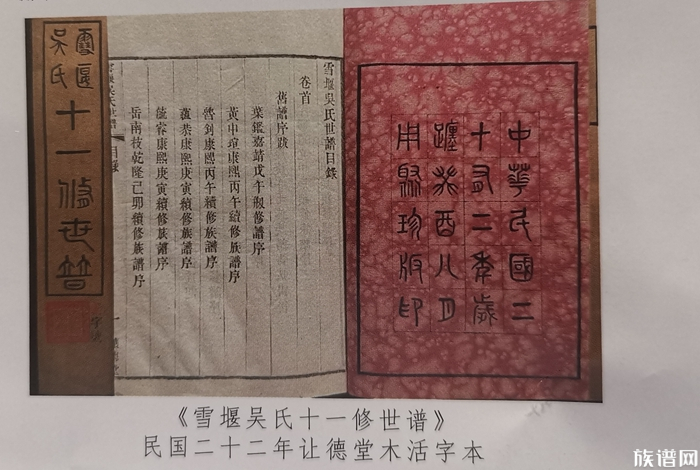 雪堰
吳氏
十一修世譜
雪堰吳氏世譜目錄
卷首
舊譜序跋
葉鑑嘉靖戊午剏修譜序
黃中瑄康熙丙午續修族譜序
魯釗康熙丙午續修族譜序
恭康熙庚寅續修族譜序
康熙庚寅續修族譜序
岳南技乾隆己卯續修族譜序
中華民國二
十有二年歲
躔癸酉八月
用聚珍版印
《雪堰吴氏十一修世谱》
民国二十二年让德堂木活字本
族谱网